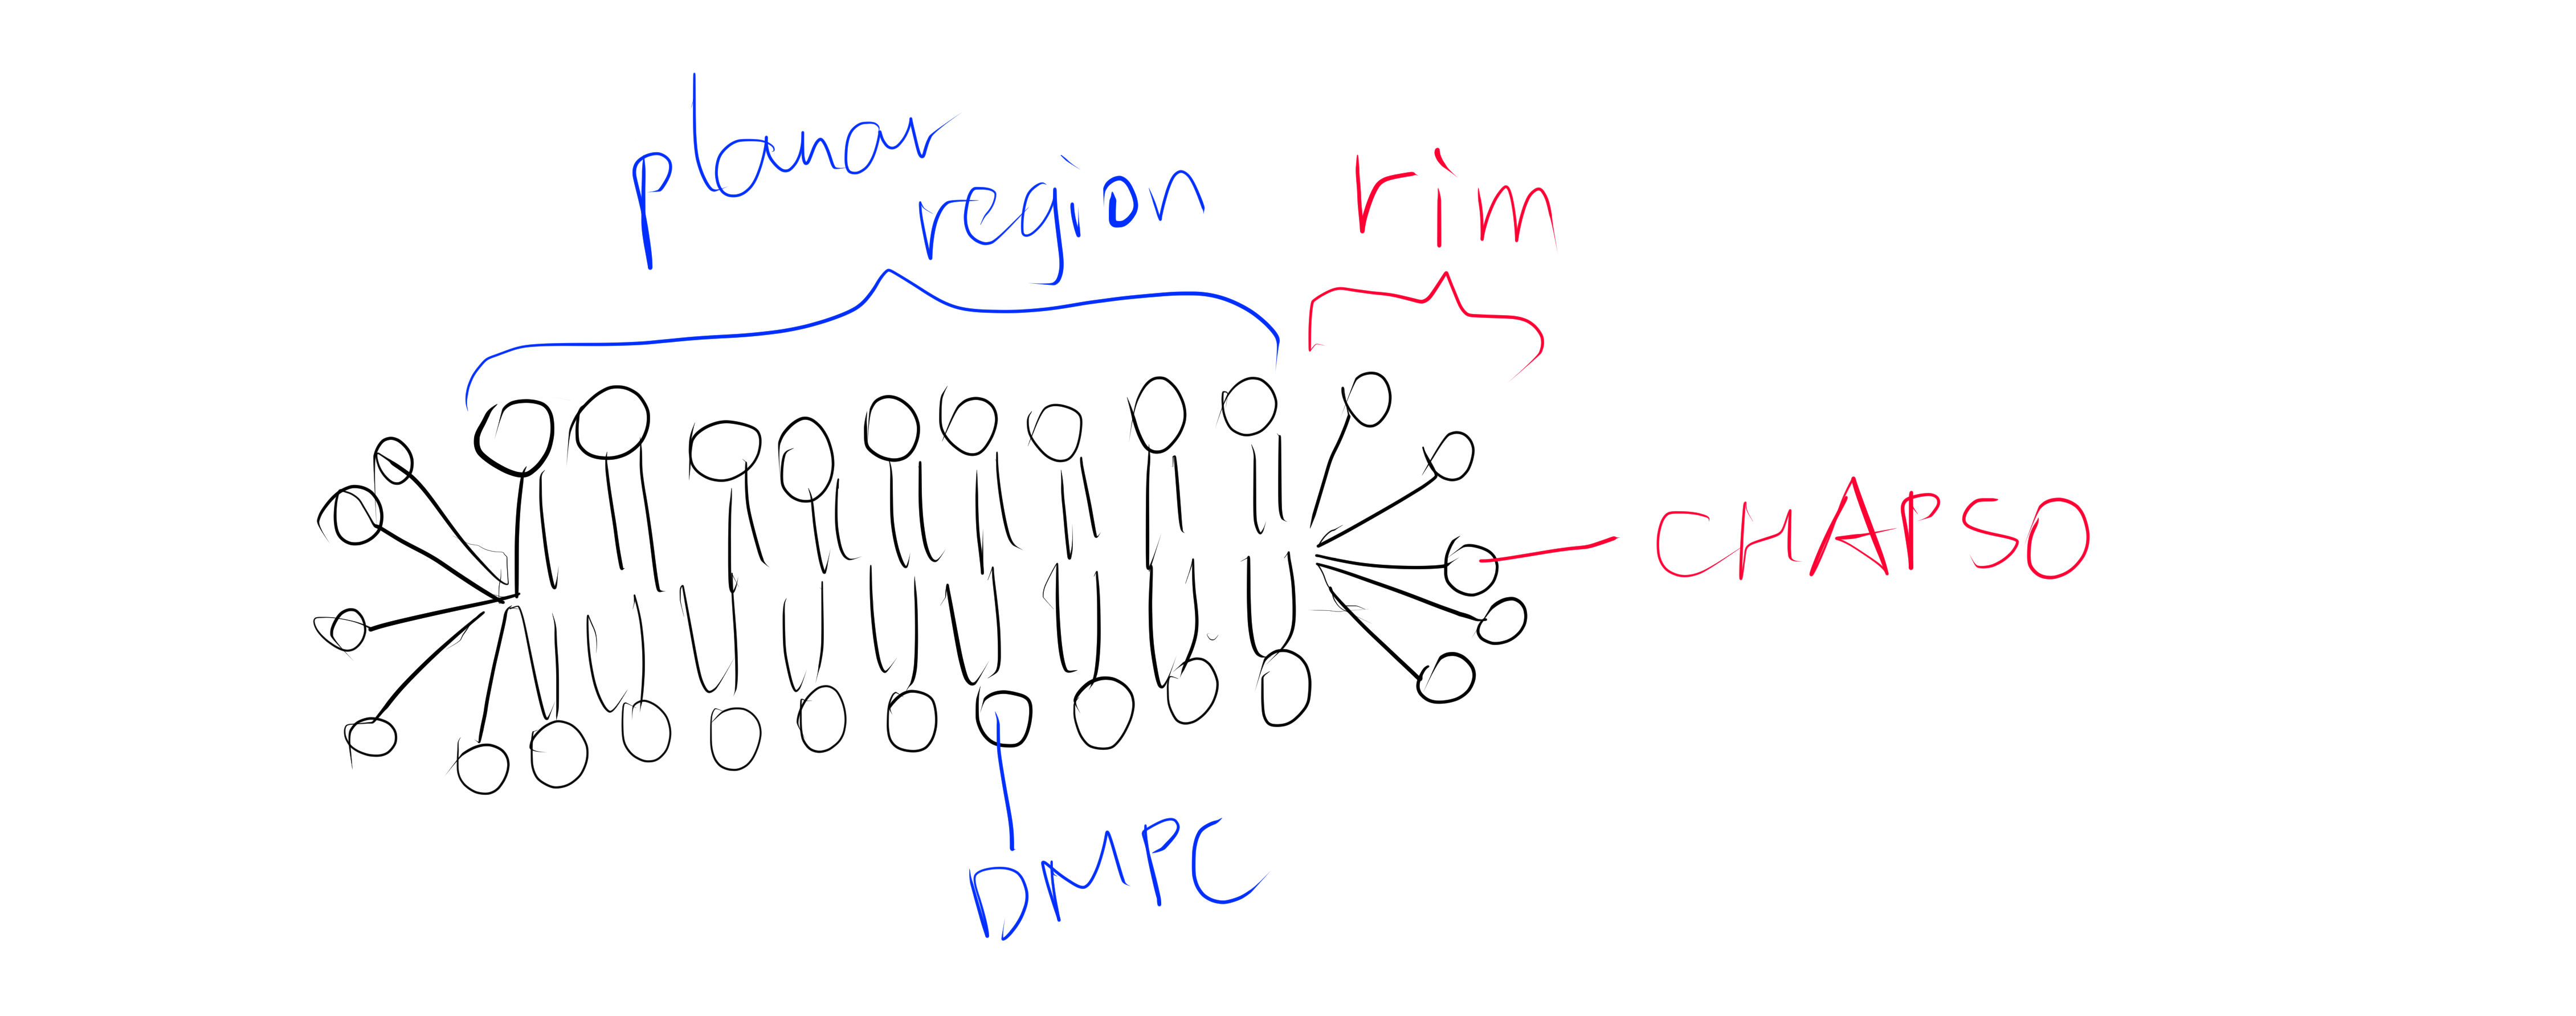 planar
region
rim
CHAPSO
DMPC